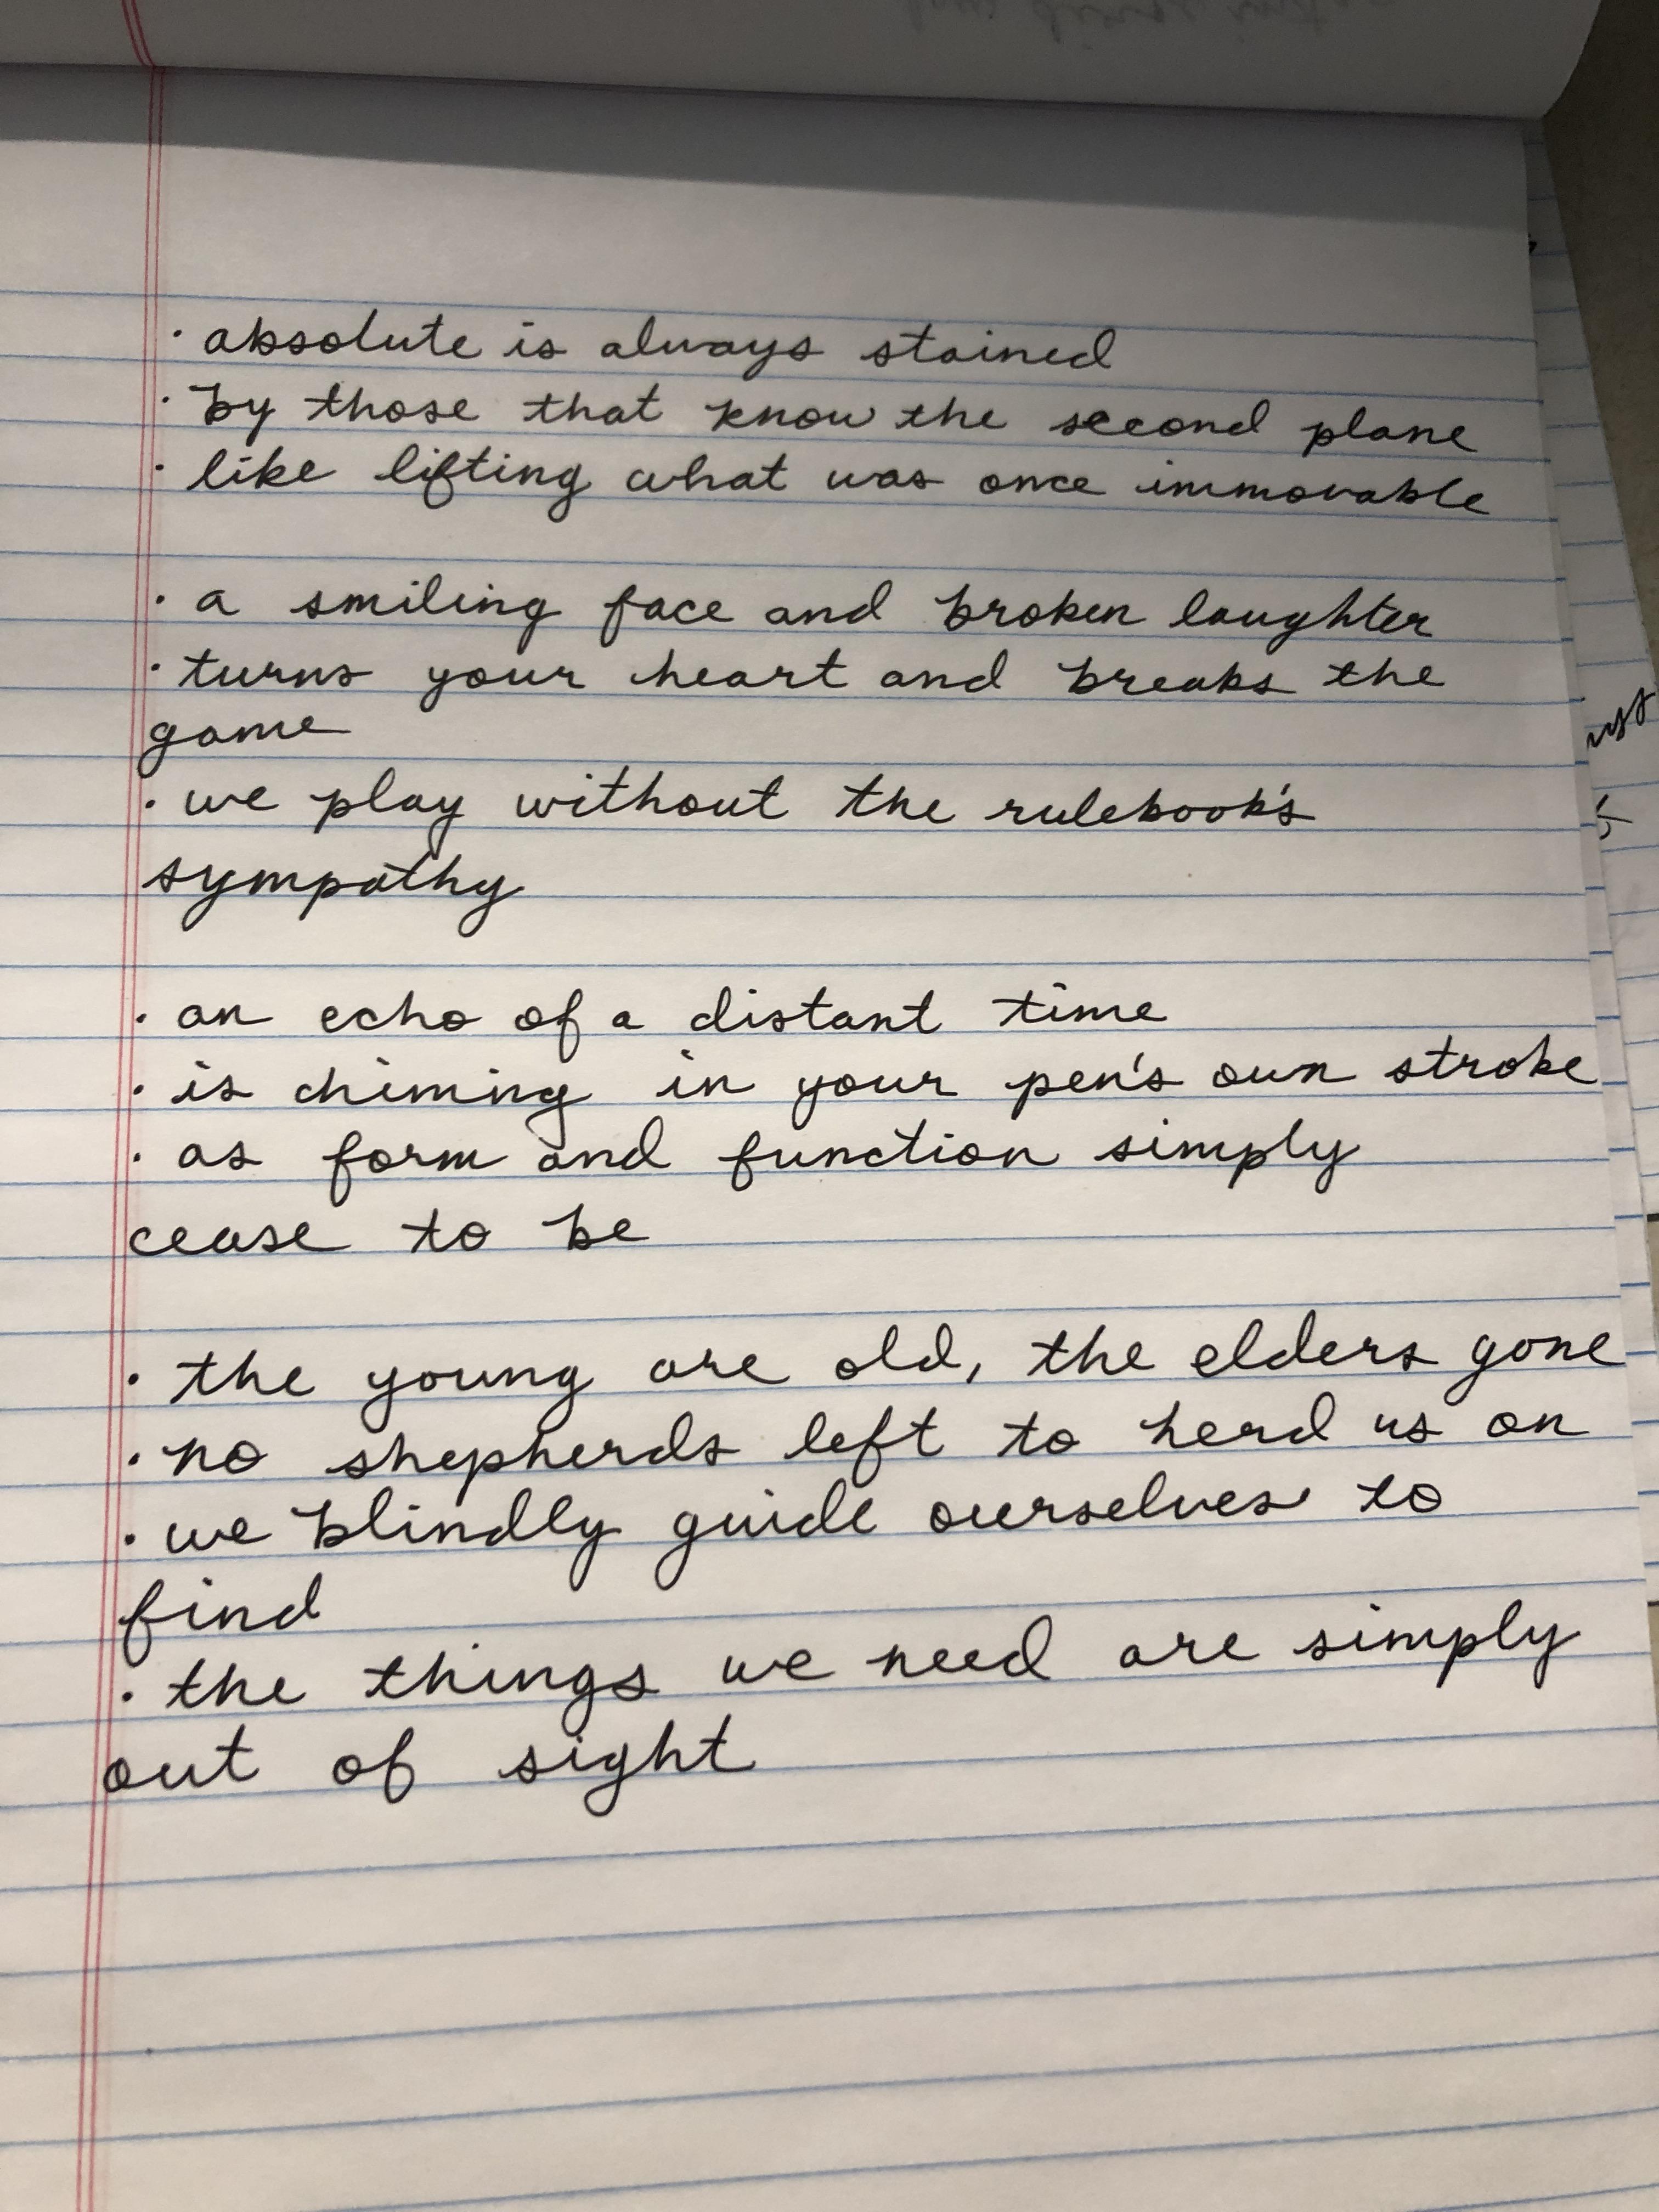 · absolute is always stained
· by those that know the second plane
· like lifting what was once immovable
· a smiling face and broken laughter
· turns your heart and breaks the
game
· we play without the rulebook's
sympathy
· an echo of a distant time
· is chiming in your pen's own stroke
· as form and function simply
cease to be
· the young are old, the elders gone
· no shepherds left to herd us on
· we blindly guide ourselves to
find
· the things we need are simply
out of sight